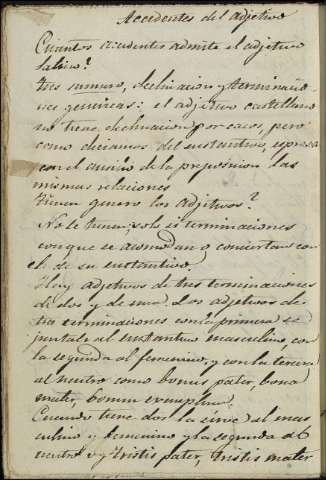 Accedentes del adjetivo
Cuantos accidentes admite el adjetivo
latino?
Tres numero, declinacion y terminacio-
nes genericas: el adjetivo castellano
no tiene declinacion por casos, pero
como deciamos del sustantivo, espresa
con el ausilio de la preposicion las
mismas relaciones
Tienen genero los adjetivos?
No le tienen; solo si terminaciones
con que se acomodan o conciertan con
el de su sustantivo.
Hay adjetivos de tres terminaciones
de dos y de una. Los adjetivos de
tres terminaciones con la primera se
juntan al sustantivo masculino, con
la segunda al femenino, y con la tercera
al neutro como bonus pater, bona
mater, bonum exemplum.
Cuando tiene dos la sirve al mas
culino y femenino y la segunda al
neutro v g tristis pater, tristis mater